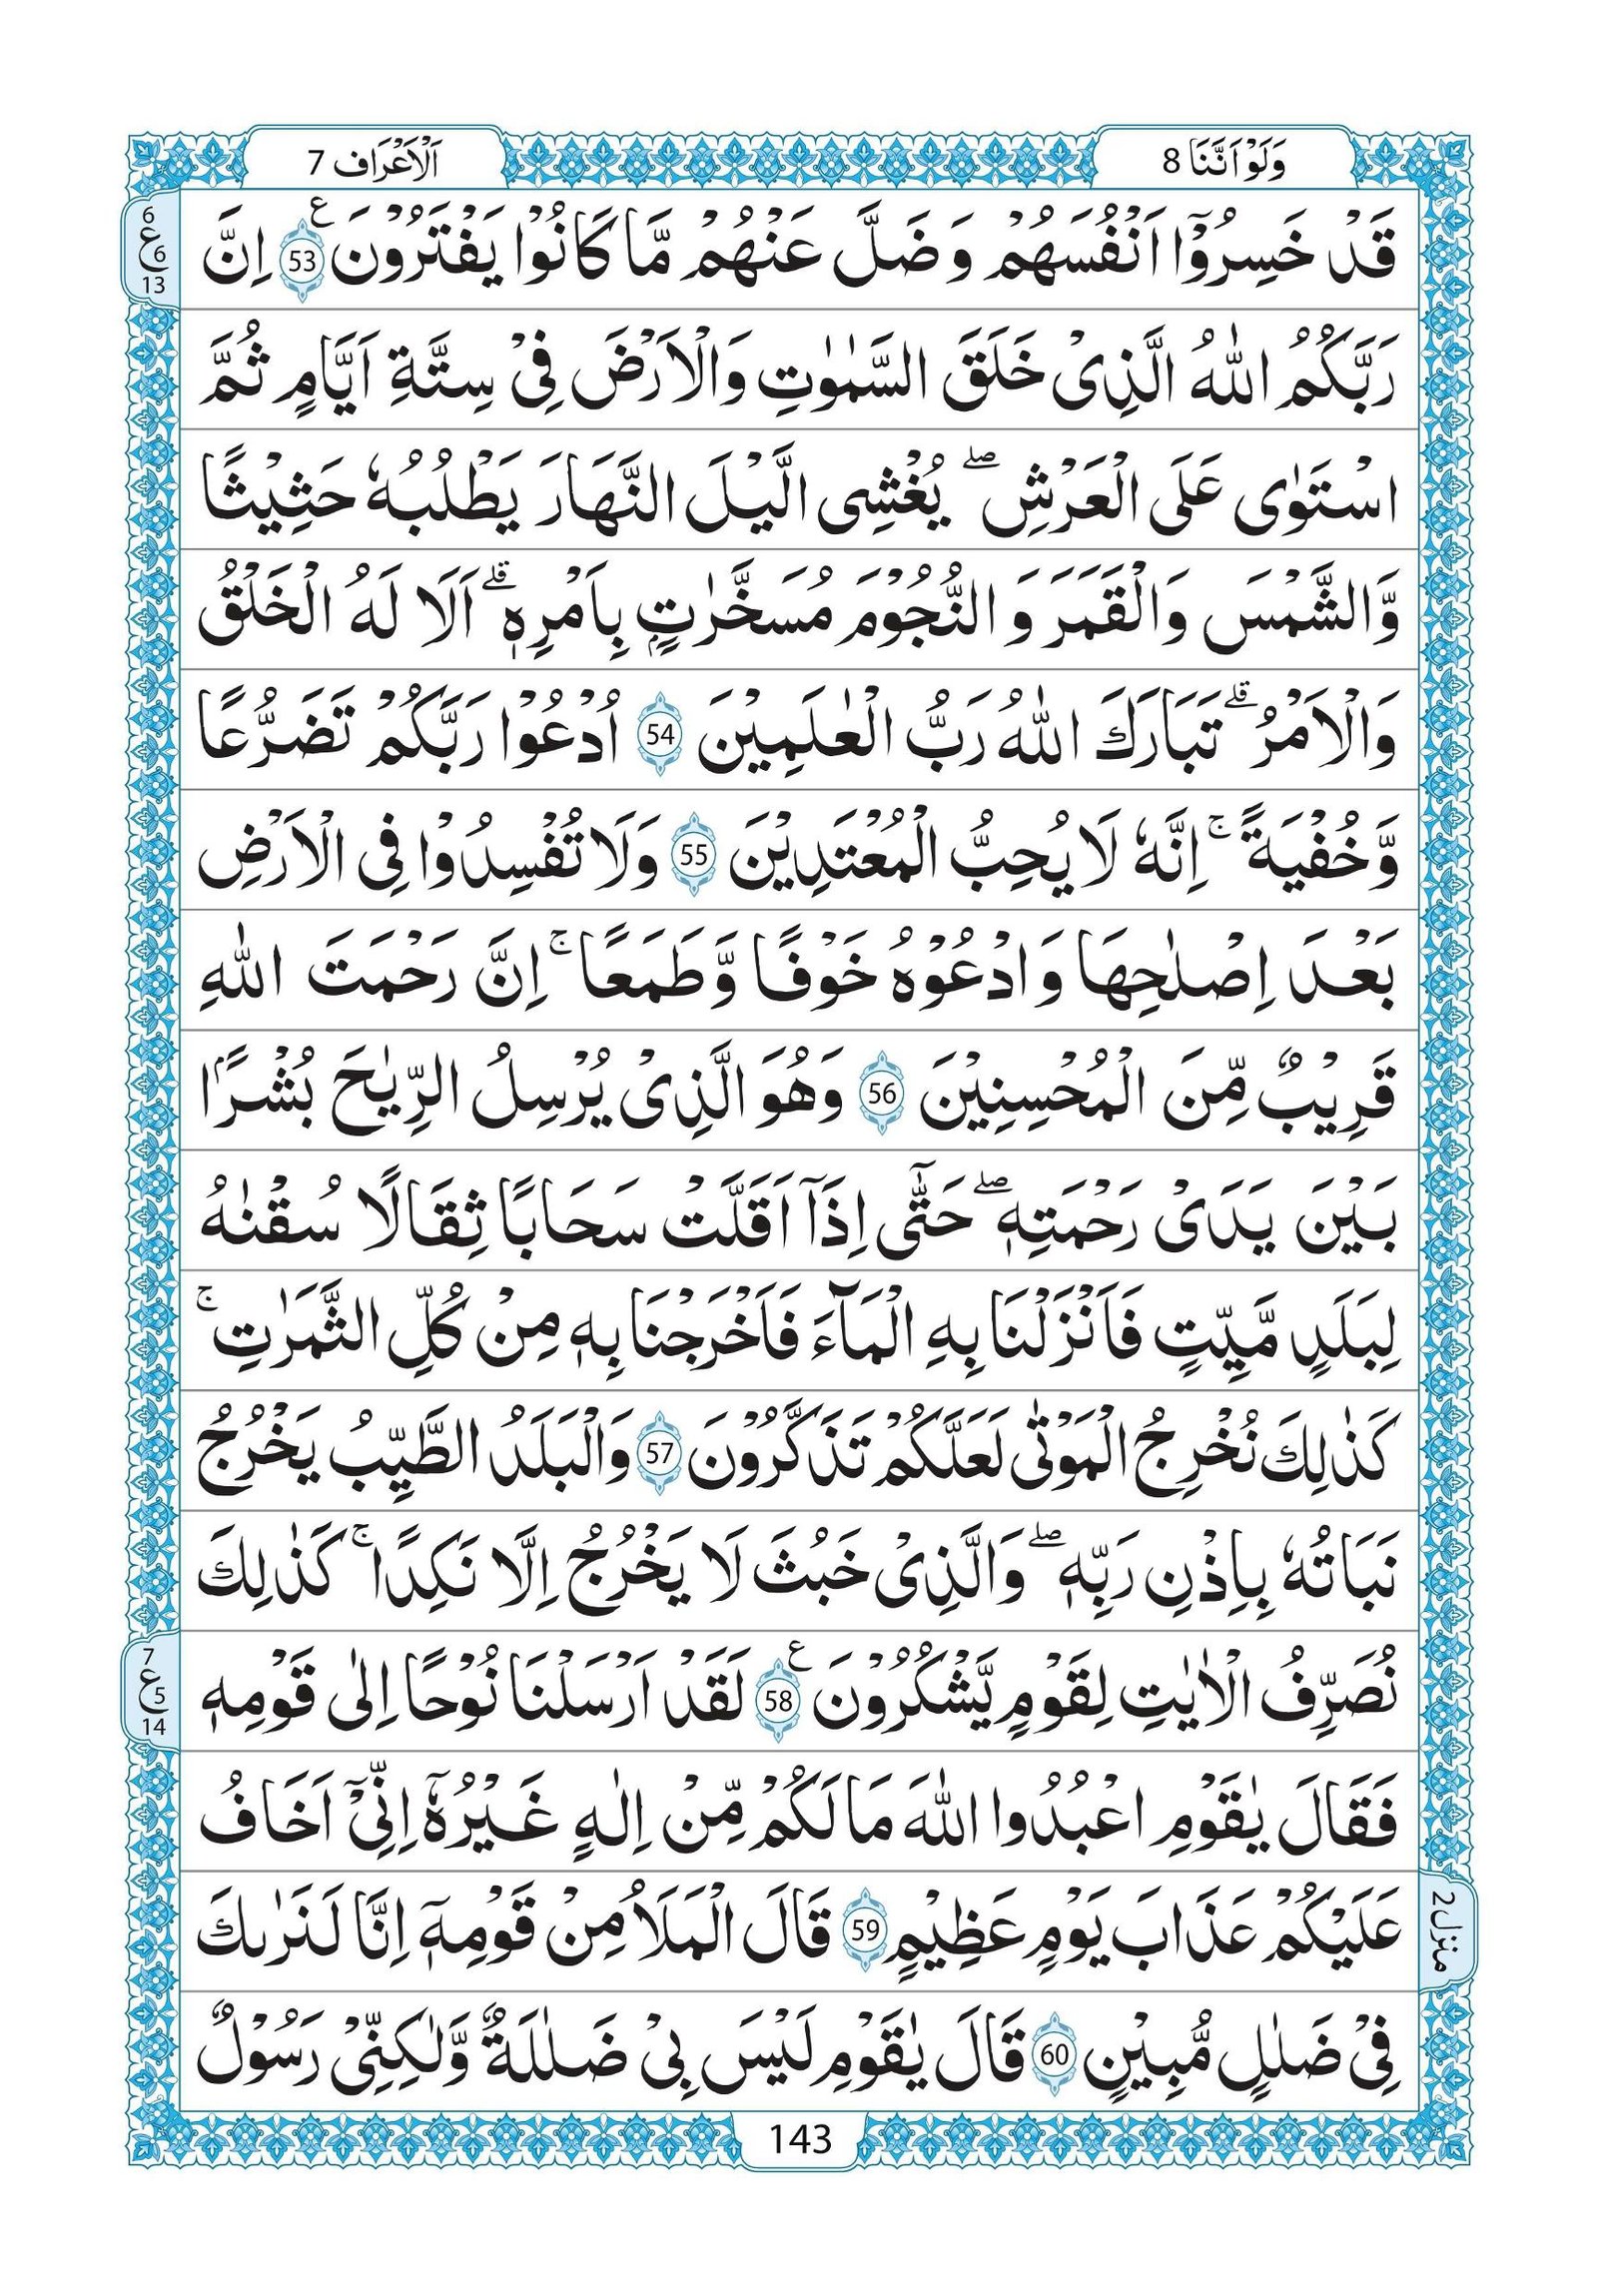 وَلَوْ اَنَّنَا 8
اَلْاَعْرَاف 7
6
ع 6
13
قَدْ خَسِرُوْۤا اَنْفُسَهُمْ وَ ضَلَّ عَنْهُمْ مَّا كَانُوْا يَفْتَرُوْنَ ۧ 53 اِنَّ
رَبَّكُمُ اللّٰهُ الَّذِیْ خَلَقَ السَّمٰوٰتِ وَالْاَرْضَ فِیْ سِتَّةِ اَيَّامٍ ثُمَّ
اسْتَوٰی عَلَی الْعَرْشِ ۖ يُغْشِی الَّيْلَ النَّهَارَ يَطْلُبُهٗ حَثِيْثًا
وَّالشَّمْسَ وَالْقَمَرَ وَ النُّجُوْمَ مُسَخَّرٰتٍۭ بِاَمْرِهٖ ۗ اَلَا لَهُ الْخَلْقُ
وَالْاَمْرُ ۗ تَبَارَكَ اللّٰهُ رَبُّ الْعٰلَمِيْنَ 54 اُدْعُوْا رَبَّكُمْ تَضَرُّعًا
وَّخُفْيَةً ۚ اِنَّهٗ لَا يُحِبُّ الْمُعْتَدِيْنَ 55 وَلَا تُفْسِدُوْا فِی الْاَرْضِ
بَعْدَ اِصْلٰحِهَا وَ ادْعُوْهُ خَوْفًا وَّطَمَعًا ۚ اِنَّ رَحْمَتَ اللّٰهِ
قَرِيْبٌ مِّنَ الْمُحْسِنِيْنَ 56 وَهُوَ الَّذِیْ يُرْسِلُ الرِّيٰحَ بُشْرًۢا
بَيْنَ يَدَیْ رَحْمَتِهٖ ۖ حَتّٰۤی اِذَاۤ اَقَلَّتْ سَحَابًا ثِقَالًا سُقْنٰهُ
لِبَلَدٍ مَّيِّتٍ فَاَنْزَلْنَا بِهِ الْمَآءَ فَاَخْرَجْنَا بِهٖ مِنْ كُلِّ الثَّمَرٰتِ ۚ
كَذٰلِكَ نُخْرِجُ الْمَوْتٰی لَعَلَّكُمْ تَذَكَّرُوْنَ 57 وَالْبَلَدُ الطَّيِّبُ يَخْرُجُ
نَبَاتُهٗ بِاِذْنِ رَبِّهٖ ۖ وَالَّذِیْ خَبُثَ لَا يَخْرُجُ اِلَّا نَكِدًا ۚ كَذٰلِكَ
7
ع 5
14
نُصَرِّفُ الْاٰيٰتِ لِقَوْمٍ يَّشْكُرُوْنَ ۧ 58 لَقَدْ اَرْسَلْنَا نُوْحًا اِلٰی قَوْمِهٖ
فَقَالَ يٰقَوْمِ اعْبُدُوا اللّٰهَ مَا لَكُمْ مِّنْ اِلٰهٍ غَيْرُهٗۤ اِنِّیْۤ اَخَافُ
عَلَيْكُمْ عَذَابَ يَوْمٍ عَظِيْمٍ 59 قَالَ الْمَلَاُ مِنْ قَوْمِهٖۤ اِنَّا لَنَرٰىكَ
منزل 2
فِیْ ضَلٰلٍ مُّبِيْنٍ 60 قَالَ يٰقَوْمِ لَيْسَ بِیْ ضَلٰلَةٌ وَّلٰكِنِّیْ رَسُوْلٌ
143